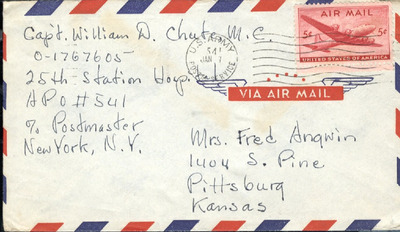 Capt. William D. Chute M.C.
O-1767605
25th Station Hosp.
APO #541
c/o Postmaster
New York, N.Y.
U.S. ARMY
541
JAN
POSTAL SERVICE
AIR MAIL
5¢ 5¢
UNITED STATES OF AMERICA
VIA AIR MAIL
Mrs. Fred Angwin
1404 S. Pine
Pittsburg
Kansas